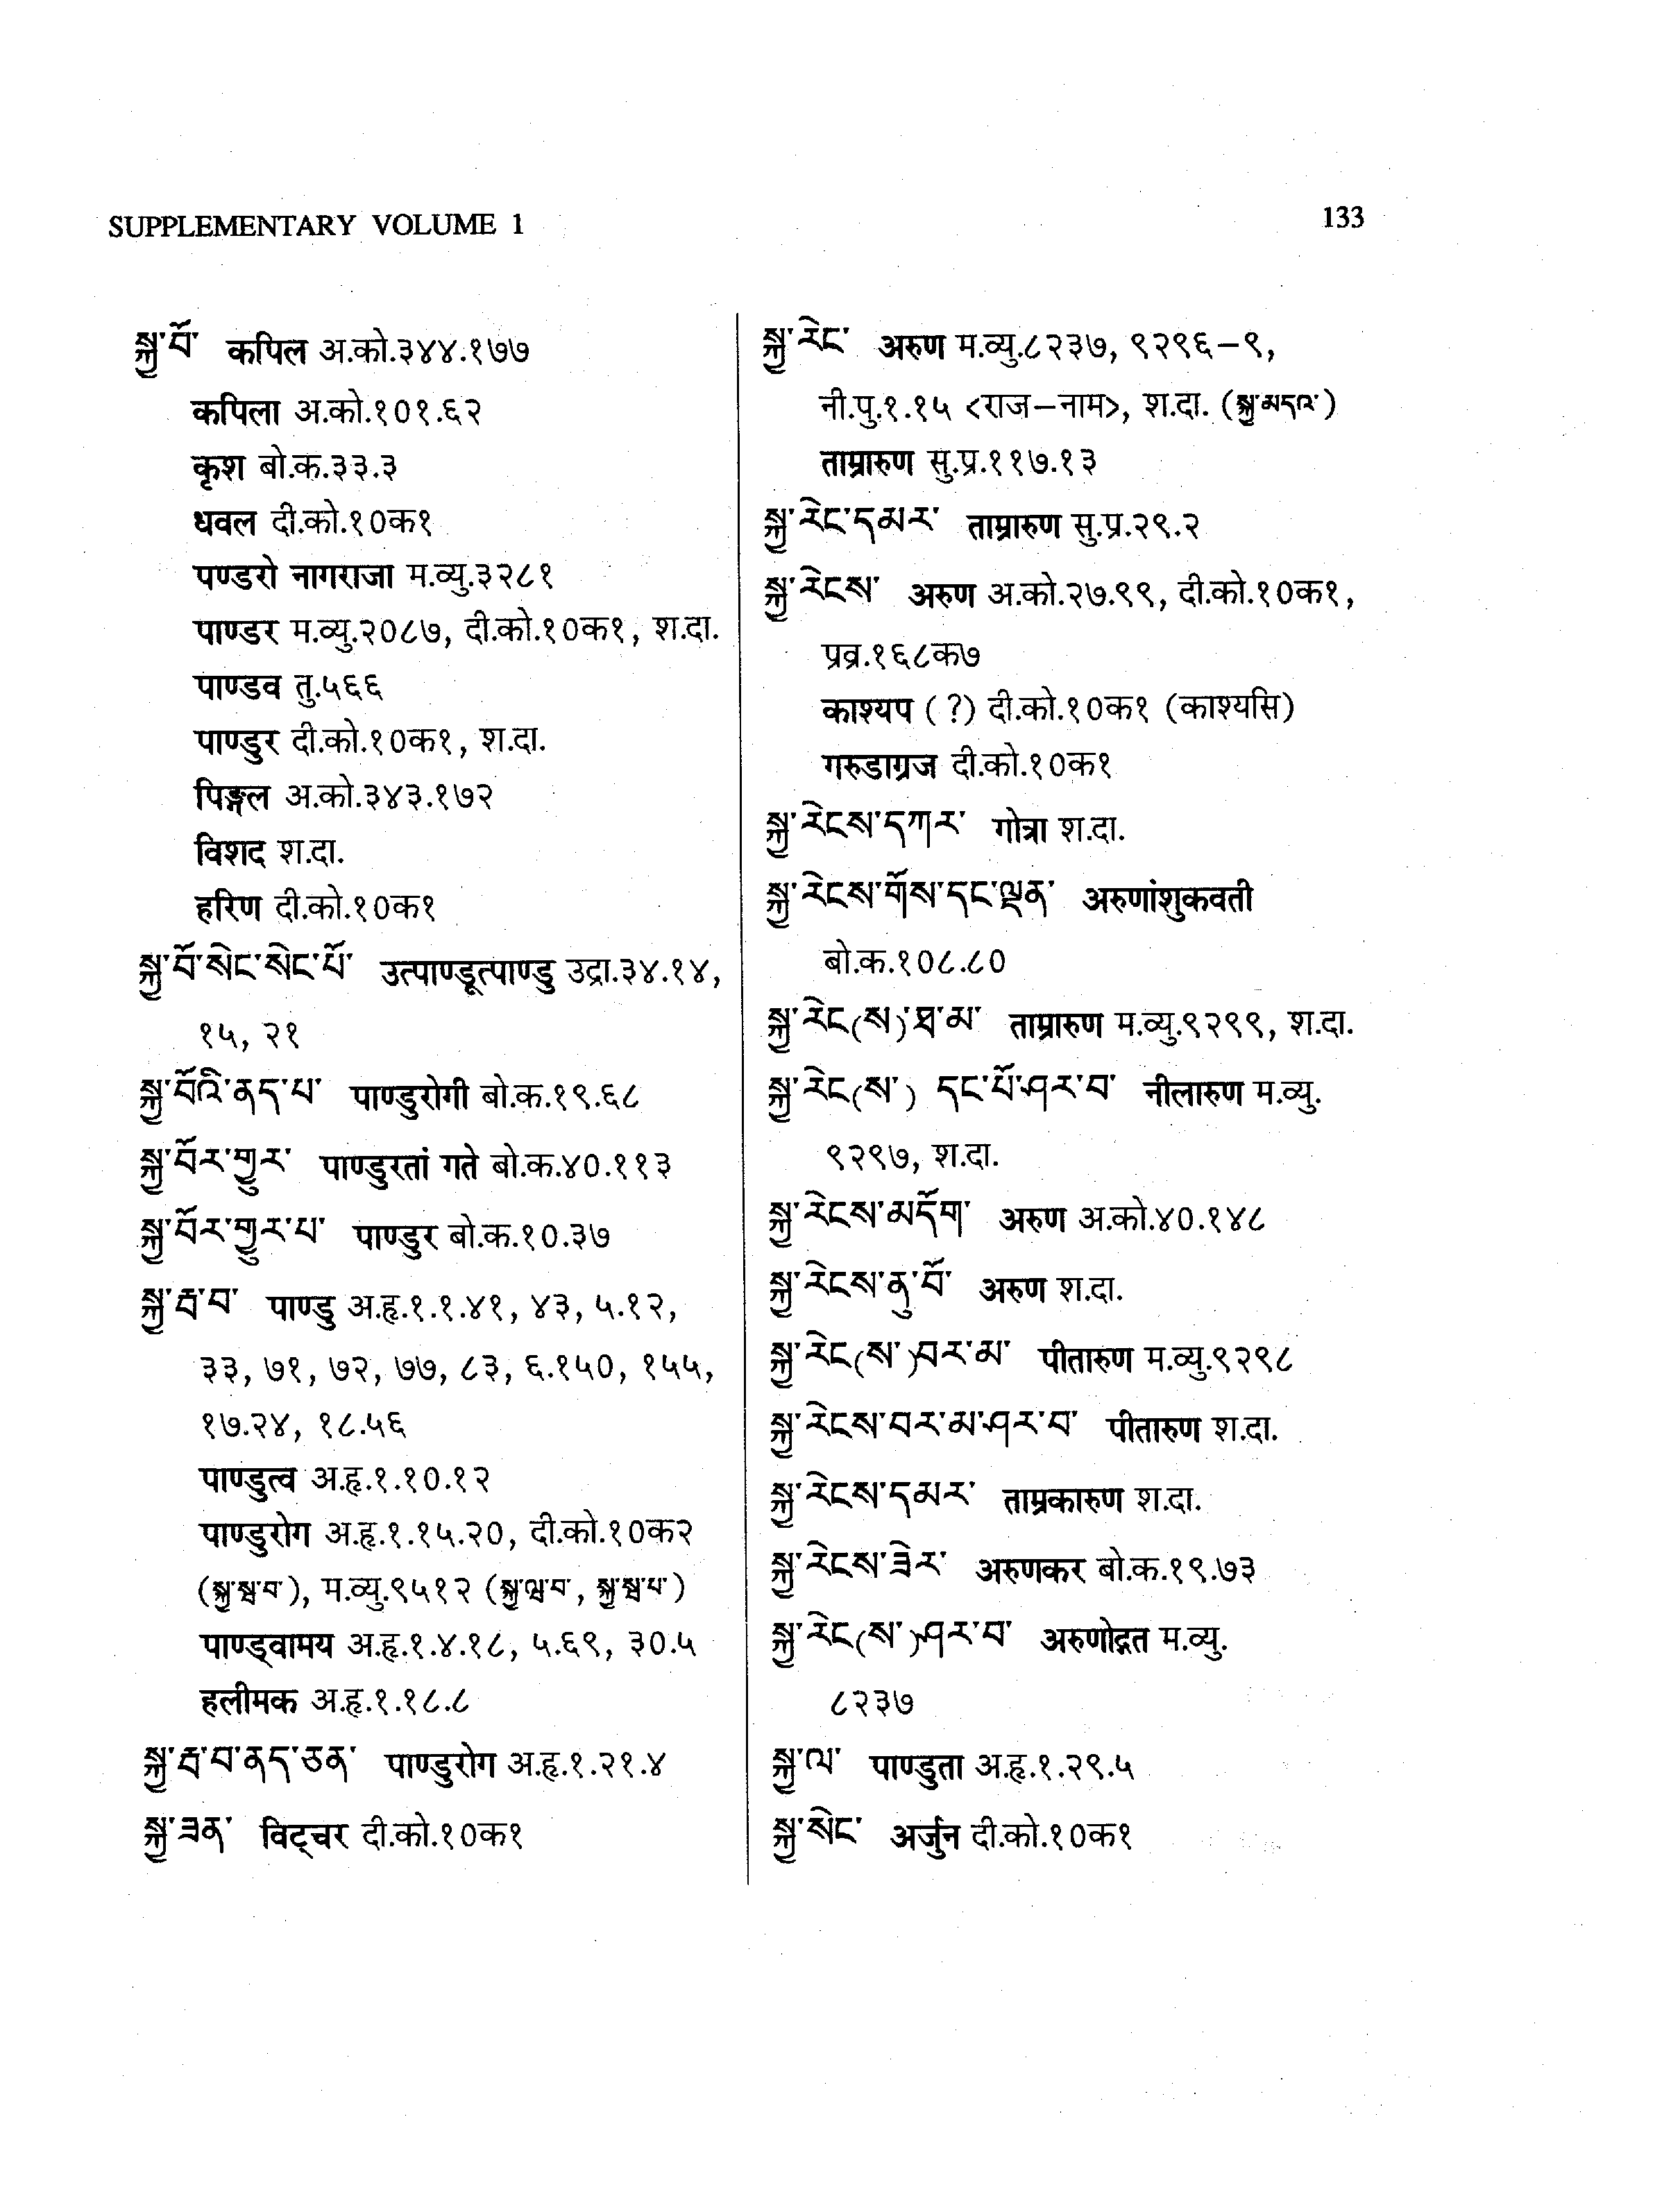 SUPPLEMENTARY VOLUME 1
133
སྐྱ་བོ་ कपिल अ.को.३४४.१७७
कपिला अ.को.१०१.६२
कृश बो.क.३३.३
धवल दी.को.१०क१
पण्डरो नागराजा म.व्यु.३२८१
पाण्डर म.व्यु.२०८७, दी.को.१०क१, श.दा.
पाण्डव तु.५६६
पाण्डुर दी.को.१०क१, श.दा.
पिङ्गल अ.को.३४३.१७२
विशद श.दा.
हरिण दी.को.१०क१
སྐྱ་བོ་སེང་སེང་པོ་ उत्पाण्डूत्पाण्डु उद्रा.३४.१४,
१५, २१
སྐྱ་བོའི་ནད་པ་ पाण्डुरोगी बो.क.१९.६८
སྐྱ་བོར་གྱུར་ पाण्डुरतां गते बो.क.४०.११३
སྐྱ་བོར་གྱུར་པ་ पाण्डुर बो.क.१०.३७
སྐྱ་རྦ་བ་ पाण्डु अ.हृ.१.१.४१, ४३, ५.१२,
३३, ७१, ७२, ७७, ८३, ६.१५०, १५५,
१७.२४, १८.५६
पाण्डुत्व अ.हृ.१.१०.१२
पाण्डुरोग अ.हृ.१.१५.२०, दी.को.१०क२
म.व्यु.९५१२
पाण्ड्वामय अ.हृ.१.४.१८, ५.६९, ३०.५
हलीमक अ.हृ.१.१८.८
སྐྱ་རྦ་བ་ནད་ཅན་ पाण्डुरोग अ.हृ.१.२१.४
སྐྱ་ཟན་ विट्चर दी.को.१०क१
སྐྱ་རེང་ अरुण म.व्यु.८२३७, ९२९६–९,
नी.पु.१.१५ <राज–नाम>, श.दा. (སྐྱ་མདའ་)
ताम्रारुण सु.प्र.११७.१३
སྐྱ་རེང་དམར་ ताम्रारुण सु.प्र.२९.२
སྐྱ་རེངས་ अरुण अ.को.२७.९९, दी.को.१०क१,
प्रव्र.१६८क७
काश्यप (?) दी.को.१०क१ (काश्यसि)
गरुडाग्रज दी.को.१०क१
སྐྱ་རེངས་དཀར་ गोत्रा श.दा.
སྐྱ་རེངས་གོས་དང་ལྡན་ अरुणांशुकवती
बो.क.१०८.८०
སྐྱ་རེང(ས)་ཐ་མ་ ताम्रारुण म.व्यु.९२९९, श.दा.
སྐྱ་རེང(ས་) དང་པོ་ཤར་བ་ नीलारुण म.व्यु.
९२९७, श.दा.
སྐྱ་རེངས་མདོག་ अरुण अ.को.४०.१४८
སྐྱ་རེངས་ནུ་བོ་ अरुण श.दा.
སྐྱ་རེང(ས་)བར་མ་ पीतारुण म.व्यु.९२९८
སྐྱ་རེངས་བར་མ་ཤར་བ་ पीतारुण श.दा.
སྐྱ་རེངས་དམར་ ताम्रकारुण श.दा.
སྐྱ་རེངས་ཟེར་ अरुणकर बो.क.१९.७३
སྐྱ་རེང(ས་)ཤར་བ་ अरुणोद्गत म.व्यु.
८२३७
སྐྱ་ལ་ पाण्डुता अ.हृ.१.२९.५
སྐྱ་སེང་ अर्जुन दी.को.१०क१